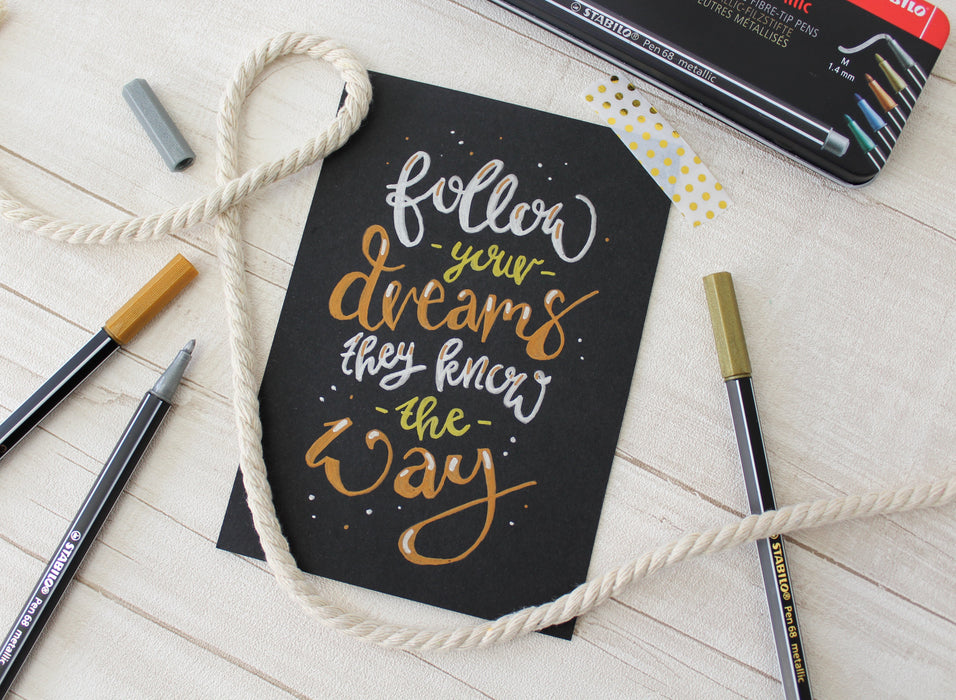 STABILO®
FIBRE-TIP PENS
FEUTRES MÉTALLISÉS
STABILO® Pen 68 metallic
M
1.4 mm
follow
- your -
dreams
they know
- the -
way
STABILO® Pen 68 metallic
STABILO® Pen 68 metallic